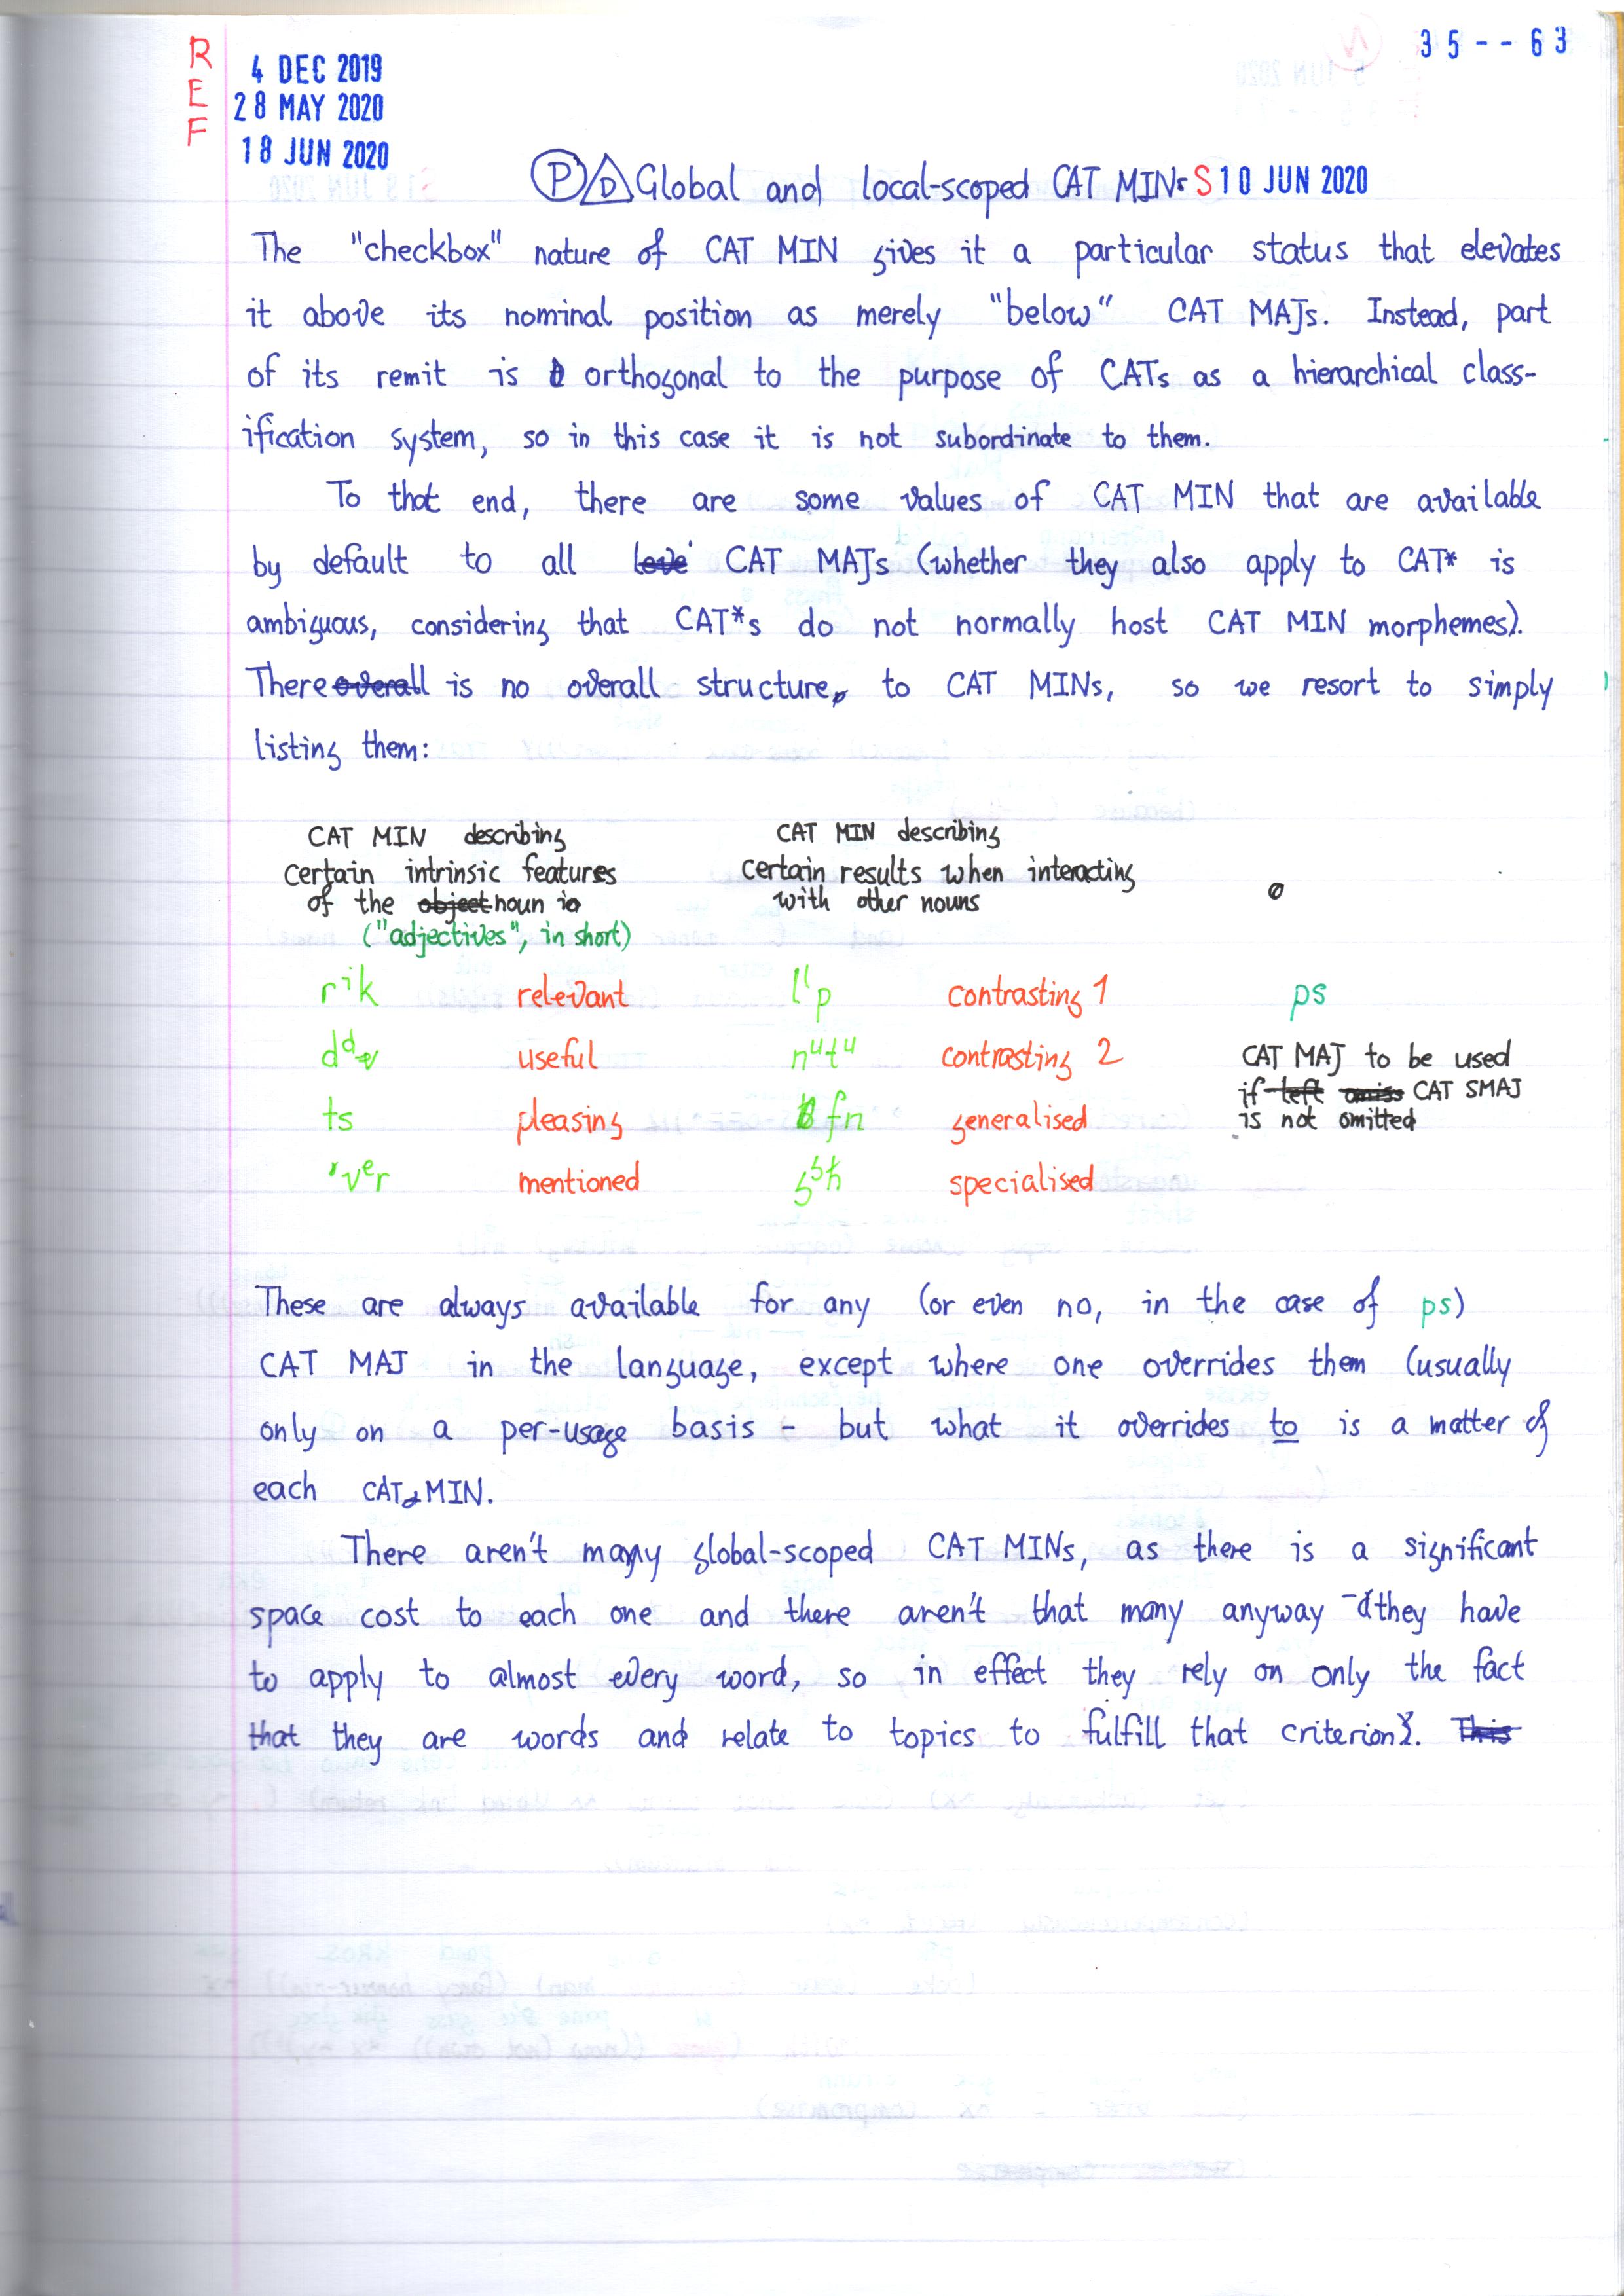 R
E
F
4 DEC 2019
28 MAY 2020
18 JUN 2020
35--63
P D Global and local-scoped CAT MINs S 10 JUN 2020
The "checkbox" nature of CAT MIN gives it a particular status that elevates
it above its nominal position as merely "below" CAT MAJs. Instead, part
of its remit is orthogonal to the purpose of CATs as a hierarchical class-
ification system, so in this case it is not subordinate to them.
To that end, there are some values of CAT MIN that are available
by default to all CAT MAJs (whether they also apply to CAT* is
ambiguous, considering that CAT*s do not normally host CAT MIN morphemes).
There overall is no overall structure, to CAT MINs, so we resort to simply
listing them:
CAT MIN describing
certain intrinsic features
of the object noun
("adjectives", in short)
CAT MIN describing
certain results when interacting
with other nouns
rik relevant l'p contrasting 1 ps
dd useful nutu contrasting 2 CAT MAJ to be used
if left CAT SMAJ
is not omitted
ts pleasing fn generalised
ver mentioned specialised
These are always available for any (or even no, in the case of ps)
CAT MAJ in the language, except where one overrides them (usually
only on a per-usage basis - but what it overrides to is a matter of
each CAT MIN.
There aren't many global-scoped CAT MINs, as there is a significant
space cost to each one and there aren't that many anyway - they have
to apply to almost every word, so in effect they rely on only the fact
that they are words and relate to topics to fulfill that criterion. This